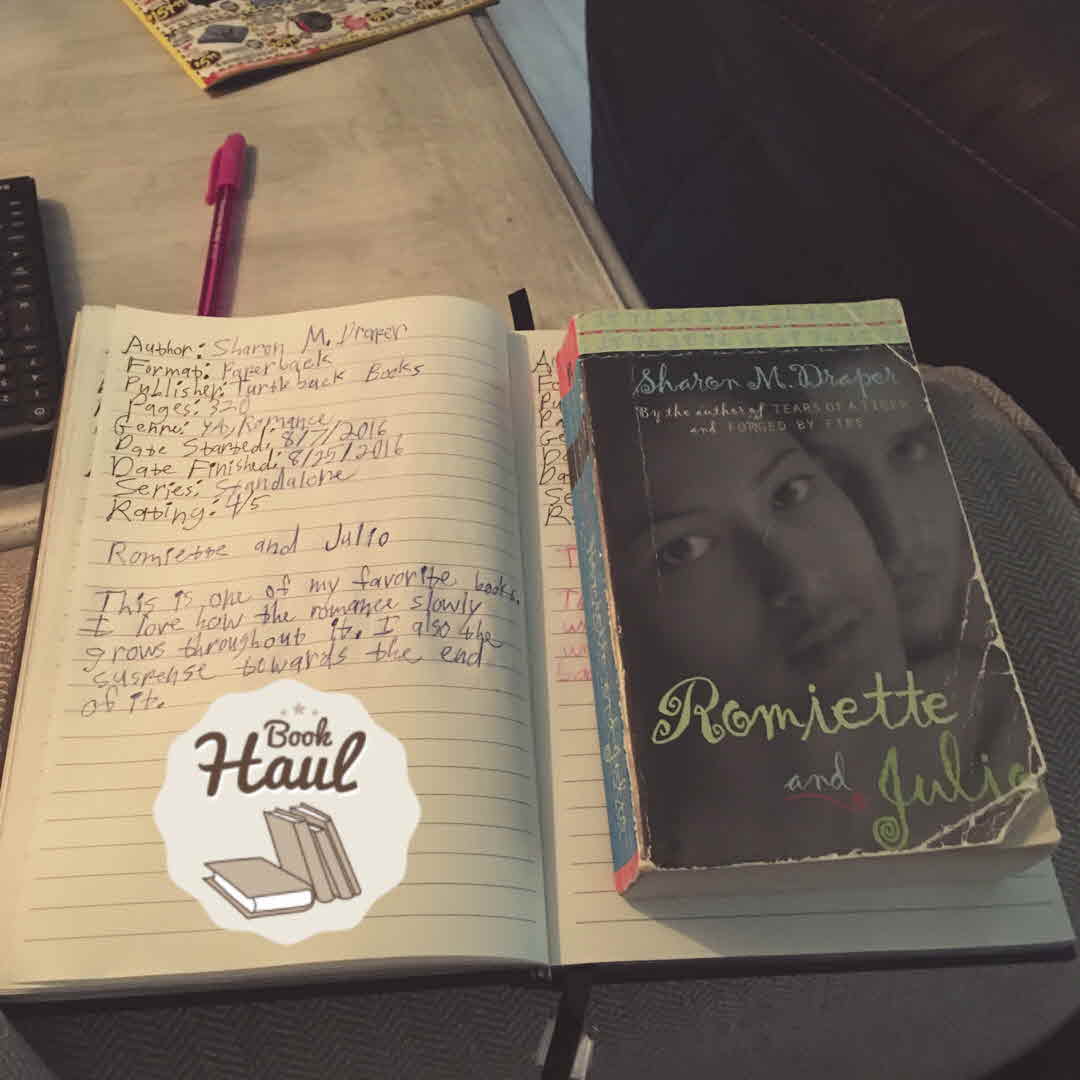 Author: Sharon M. Draper
Format: Paperback
Publisher: Turtleback Books
Pages: 320
Genre: YA, Romance
Date Started: 8/7/2016
Date Finished: 8/25/2016
Series: Standalone
Rating: 4/5
Romiette and Julio
This is one of my favorite books.
I love how the romance slowly
grows throughout it. I also the
suspense towards the end
of it.
Book
Haul
Sharon M. Draper
By the author of TEARS OF A TIGER
and FORGED BY FIRE
Romiette
and Julio